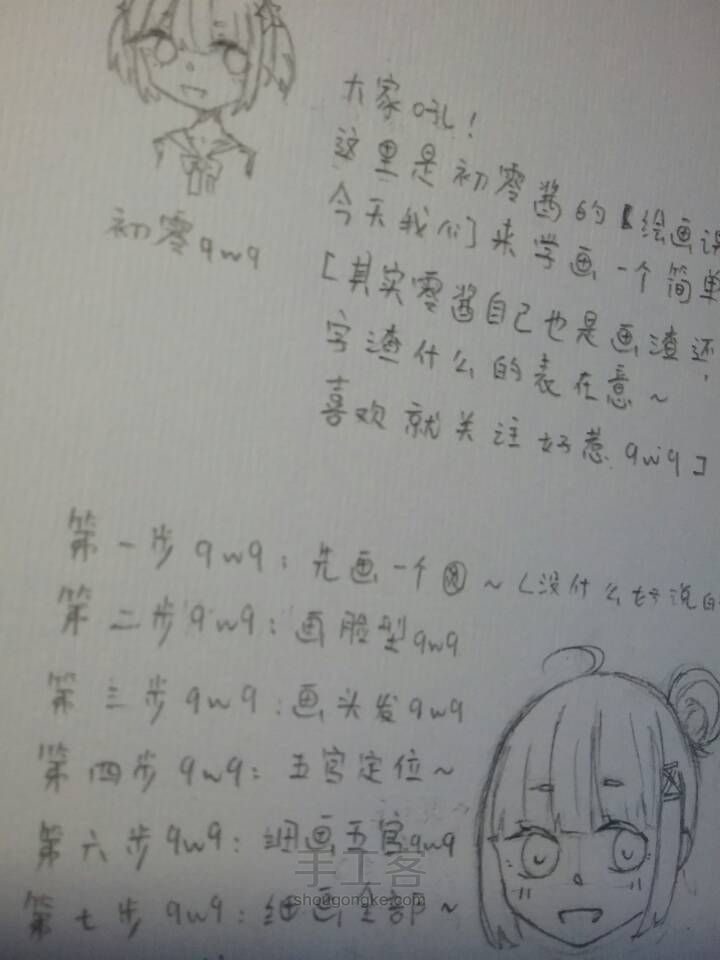 大家吼！
这里是初零酱的绘画
今天我们来学画一个简单
[其实零酱自己也是画渣还
字渣什么的表在意~
喜欢就关注好惹qwq]
初零qwq
第一步qwq：先画一个圆~(没什么好说的
第二步qwq：画脸型qwq
第三步qwq：画头发qwq
第四步qwq：五官定位~
第六步qwq：细画五官qwq
第七步qwq：细画全部~
手工客
shougongke.com